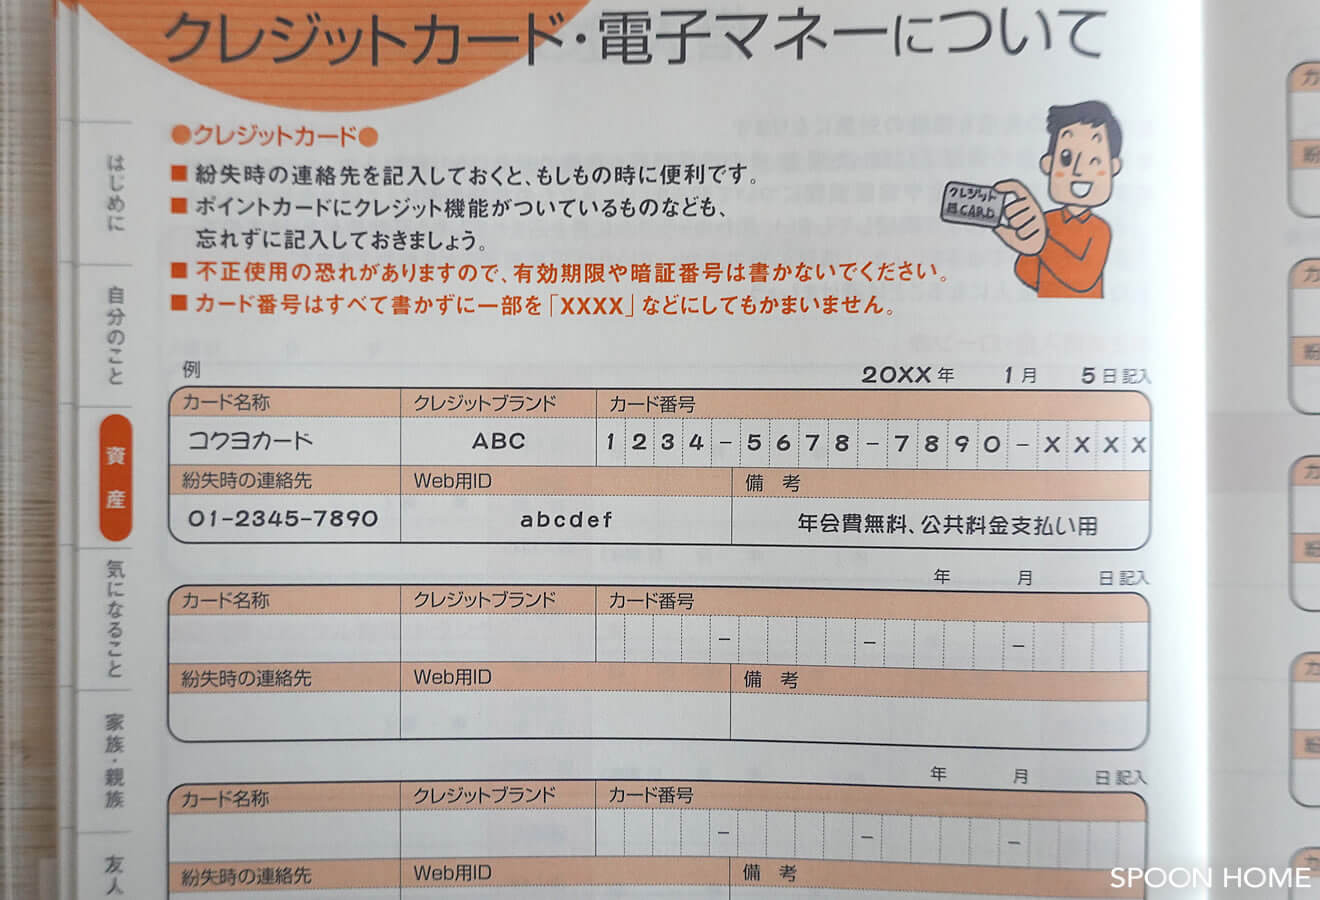 クレジットカード・電子マネーについて
●クレジットカード●
■ 紛失時の連絡先を記入しておくと、もしもの時に便利です。
■ ポイントカードにクレジット機能がついているものなども、
忘れずに記入しておきましょう。
■ 不正使用の恐れがありますので、有効期限や暗証番号は書かないでください。
■ カード番号はすべて書かずに一部を「XXXX」などにしてもかまいません。
クレジット
CARD
はじめに
自分のこと
資産
気になること
家族・親族
友人
例
20XX年 1月 5日記入
カード名称 クレジットブランド カード番号
コクヨカード ABC 1234-5678-7890-XXXX
紛失時の連絡先 Web用ID 備考
01-2345-7890 abcdef 年会費無料、公共料金支払い用
年 月 日記入
カード名称 クレジットブランド カード番号
- - -
紛失時の連絡先 Web用ID 備考
年 月 日記入
カード名称 クレジットブランド カード番号
- - -
紛失時の連絡先 Web用ID 備考
SPOON HOME